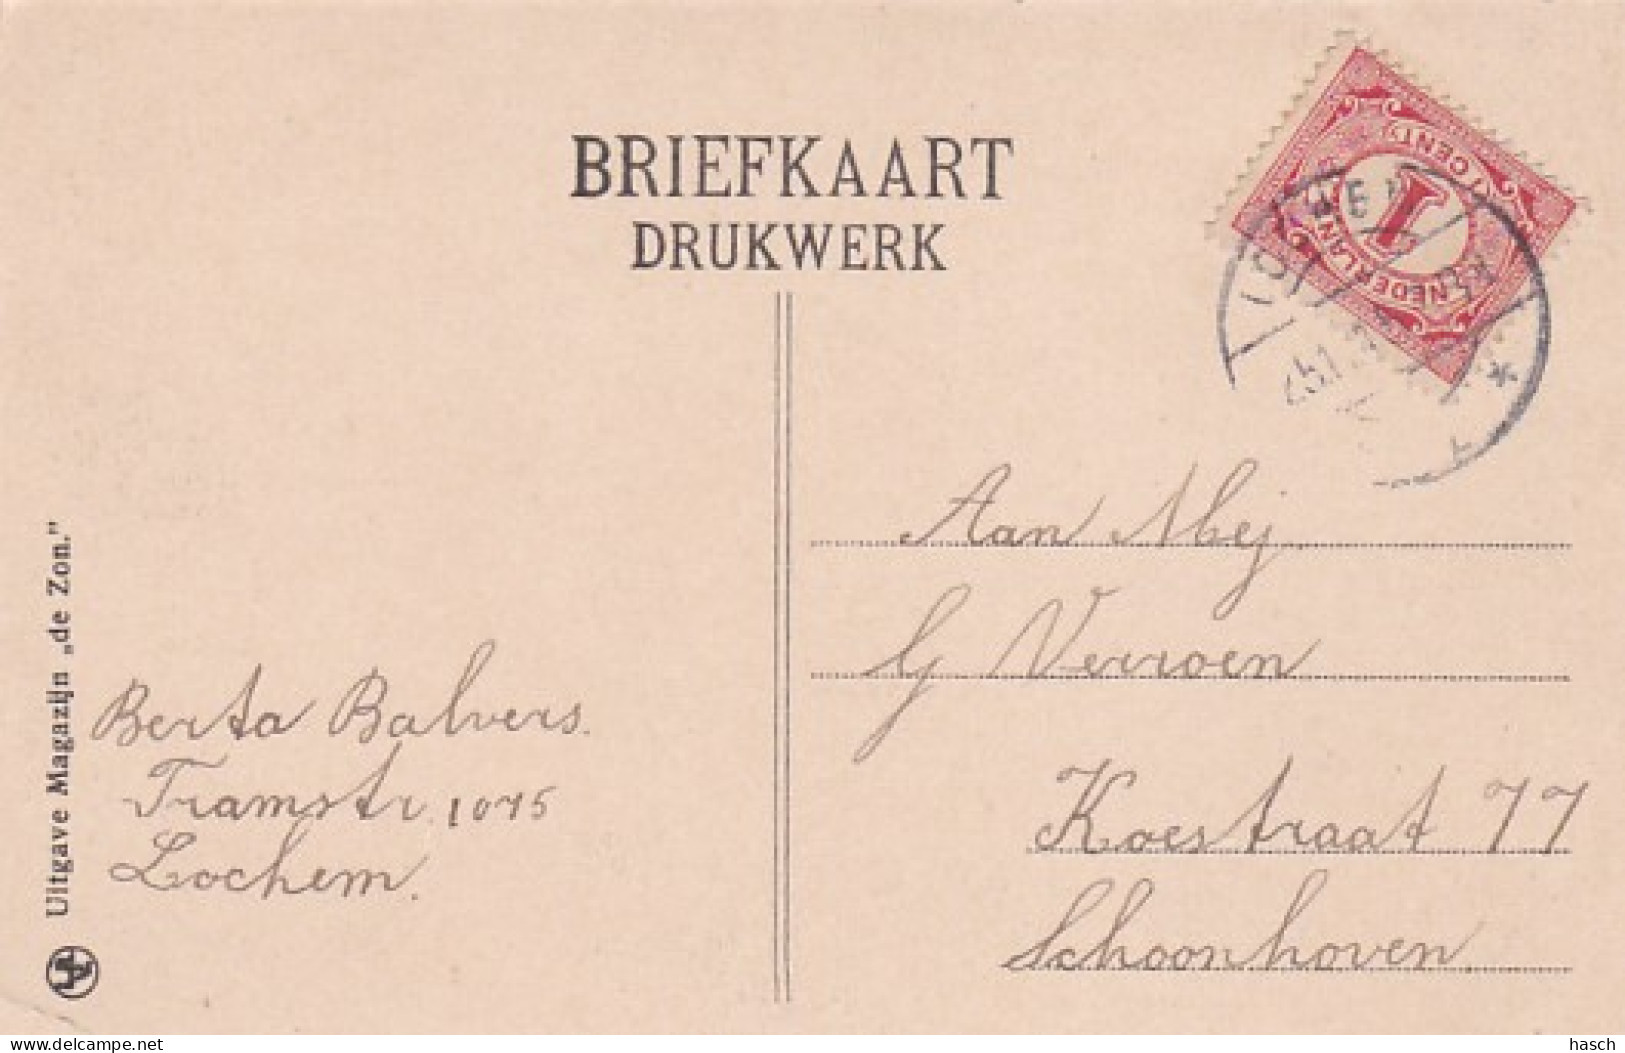 BRIEFKAART
DRUKWERK
NEDERLAND
1
(1 CENT)
Aan Mej
G Verroen
Koestraat 77
Schoonhoven
Berta Balvers.
Tramstr. 1075
Lochem.
Uitgave Magazijn „de Zon."
delcampe.net
hasch